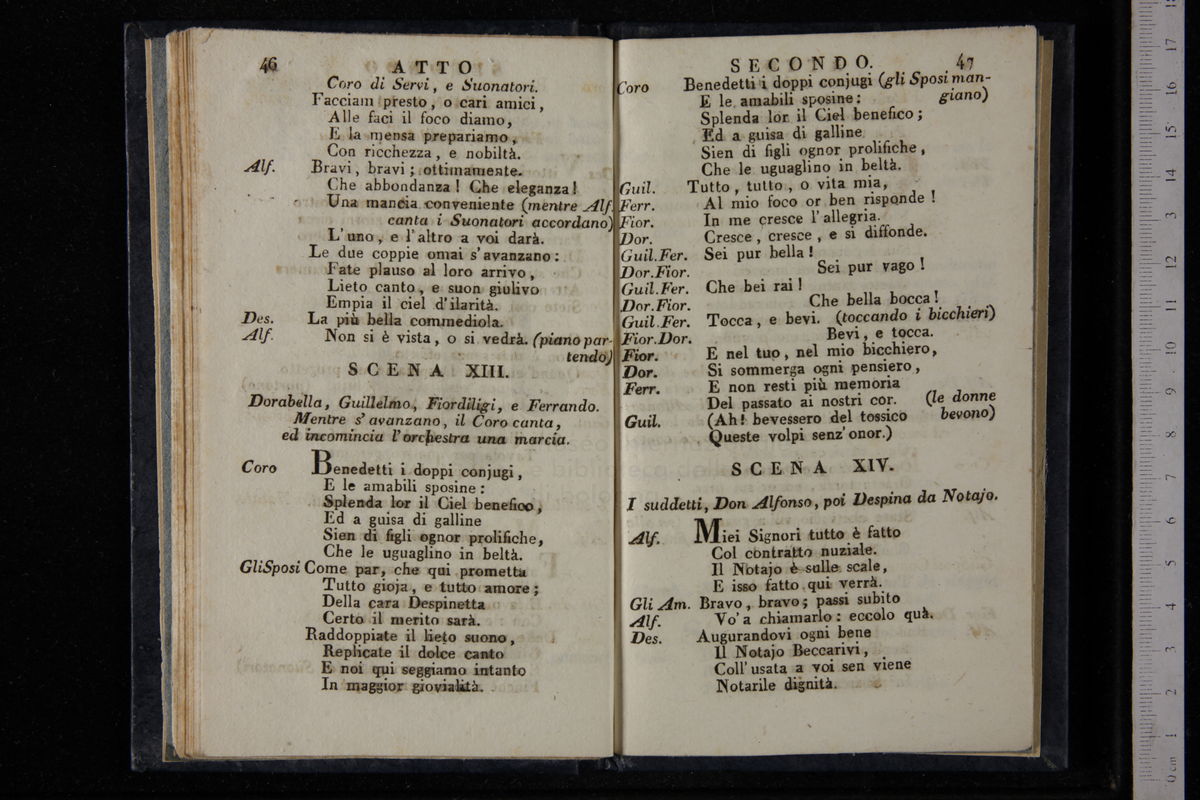 46
ATTO
Coro di Servi, e Suonatori.
Facciam presto, o cari amici,
Alle faci il foco diamo,
E la mensa prepariamo,
Con ricchezza, e nobiltà.
Alf. Bravi, bravi; ottimamente.
Che abbondanza! Che eleganza!
Una mancia conveniente (mentre Alf.
canta i Suonatori accordano)
L'uno, e l'altro a voi darà.
Le due coppie omai s'avanzano:
Fate plauso al loro arrivo,
Lieto canto, e suon giulivo
Empia il ciel d'ilarità.
Des. La più bella commediola.
Alf. Non si è vista, o si vedrà. (piano par-
tendo)
SCENA XIII.
Dorabella, Guillelmo, Fiordiligi, e Ferrando.
Mentre s'avanzano, il Coro canta,
ed incomincia l'orchestra una marcia.
Coro Benedetti i doppi conjugi,
E le amabili sposine:
Splenda lor il Ciel benefico,
Ed a guisa di galline
Sien di figli ognor prolifiche,
Che le uguaglino in beltà.
Gli Sposi Come par, che qui prometta
Tutto gioja, e tutto amore;
Della cara Despinetta
Certo il merito sarà.
Raddoppiate il lieto suono,
Replicate il dolce canto
E noi qui seggiamo intanto
In maggior giovialità.
SECONDO. 47
Coro Benedetti i doppi conjugi (gli Sposi man-
E le amabili sposine: giano)
Splenda lor il Ciel benefico;
Ed a guisa di galline
Sien di figli ognor prolifiche,
Che le uguaglino in beltà.
Guil. Tutto, tutto, o vita mia,
Ferr. Al mio foco or ben risponde!
Fior. In me cresce l'allegria.
Dor. Cresce, cresce, e si diffonde.
Guil.Fer. Sei pur bella!
Dor.Fior. Sei pur vago!
Guil.Fer. Che bei rai!
Dor.Fior. Che bella bocca!
Guil.Fer. Tocca, e bevi. (toccando i bicchieri)
Fior.Dor. Bevi, e tocca.
Fior. E nel tuo, nel mio bicchiero,
Dor. Si sommerga ogni pensiero,
Ferr. E non resti più memoria
Del passato ai nostri cor. (le donne
Guil. (Ah! bevessero del tossico bevono)
Queste volpi senz'onor.)
SCENA XIV.
I suddetti, Don Alfonso, poi Despina da Notajo.
Alf. Miei Signori tutto è fatto
Col contratto nuziale.
Il Notajo è sulle scale,
E isso fatto qui verrà.
Gli Am. Bravo, bravo; passi subito
Alf. Vo' a chiamarlo: eccolo quà.
Des. Augurandovi ogni bene
Il Notajo Beccarivi,
Coll'usata a voi sen viene
Notarile dignità.